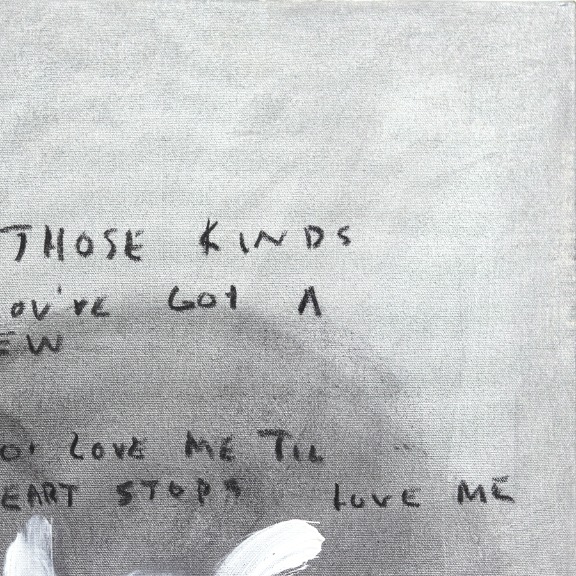 THOSE KINDS
OU'VE GOT A
EW
O' LOVE ME TIL
EART STOPS LOVE ME